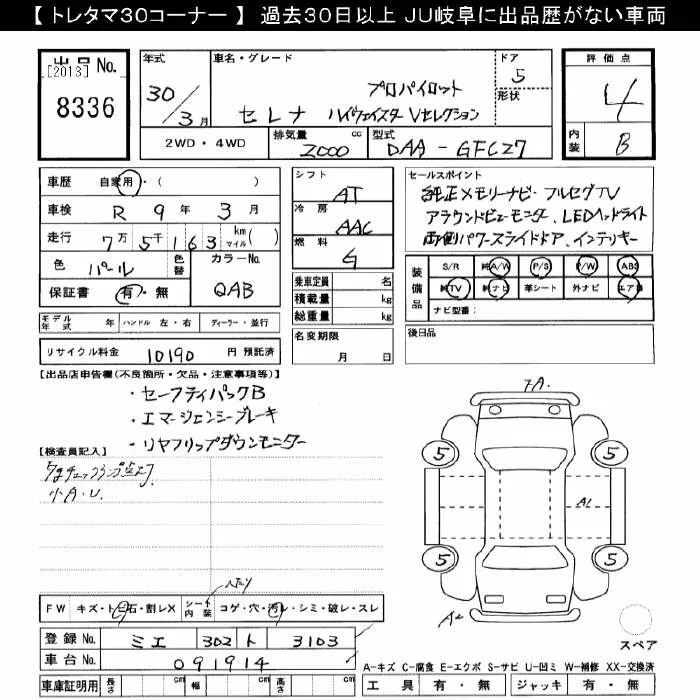 【トレタマ30コーナー】 過去30日以上 JU岐阜に出品歴がない車両
出品 No. [2013] 8336
年式 30/3月
車名・グレード プロパイロット
セレナ ハイウェイスター Vセレクション
ドア 5
形状
評価点 4
内装 B
2WD・4WD 排気量 2000 cc 型式 DAA-GFC27
車歴 自家用・( )
車検 R 9年 3月
走行 7万5千163 km マイル( )
色 パール 色替 カラーNo. QAB
保証書 有・無
モデル年式 年 ハンドル 左・右 ディーラー・並行
リサイクル料金 10190 円 預託済
シフト AT
冷房 AAC
燃料 G
乗車定員 名
積載量 kg
総重量 kg
名変期限 月 日
セールスポイント
純正メモリーナビ・フルセグTV
アラウンドビューモニタ、LEDヘッドライト
両側パワースライドドア、インテリキー
装備品 S/R 純A/W P/S P/W ABS
純TV 純ナビ 革シート 外ナビ エアB
ナビ型番:
後日品
【出品店申告欄(不良箇所・欠品・注意事項等)】
・セーフティパックB
・エマージェンシーブレーキ
・リヤフリップダウンモニター
【検査員記入】
小A・U.
FW キズ・ト石・割レX シート内装 コゲ・穴・汚レ・シミ・破レ・スレ
登録 No. ミエ 302 ト 3103
車台 No. 091914
車庫証明用 長さ cm 幅 cm 高さ cm
7A.
5 5
A1
5 5
A2
スペア
A-キズ C-腐食 E-エクボ S-サビ U-凹ミ W-補修 XX-交換済
工具 有・無 ジャッキ 有・無